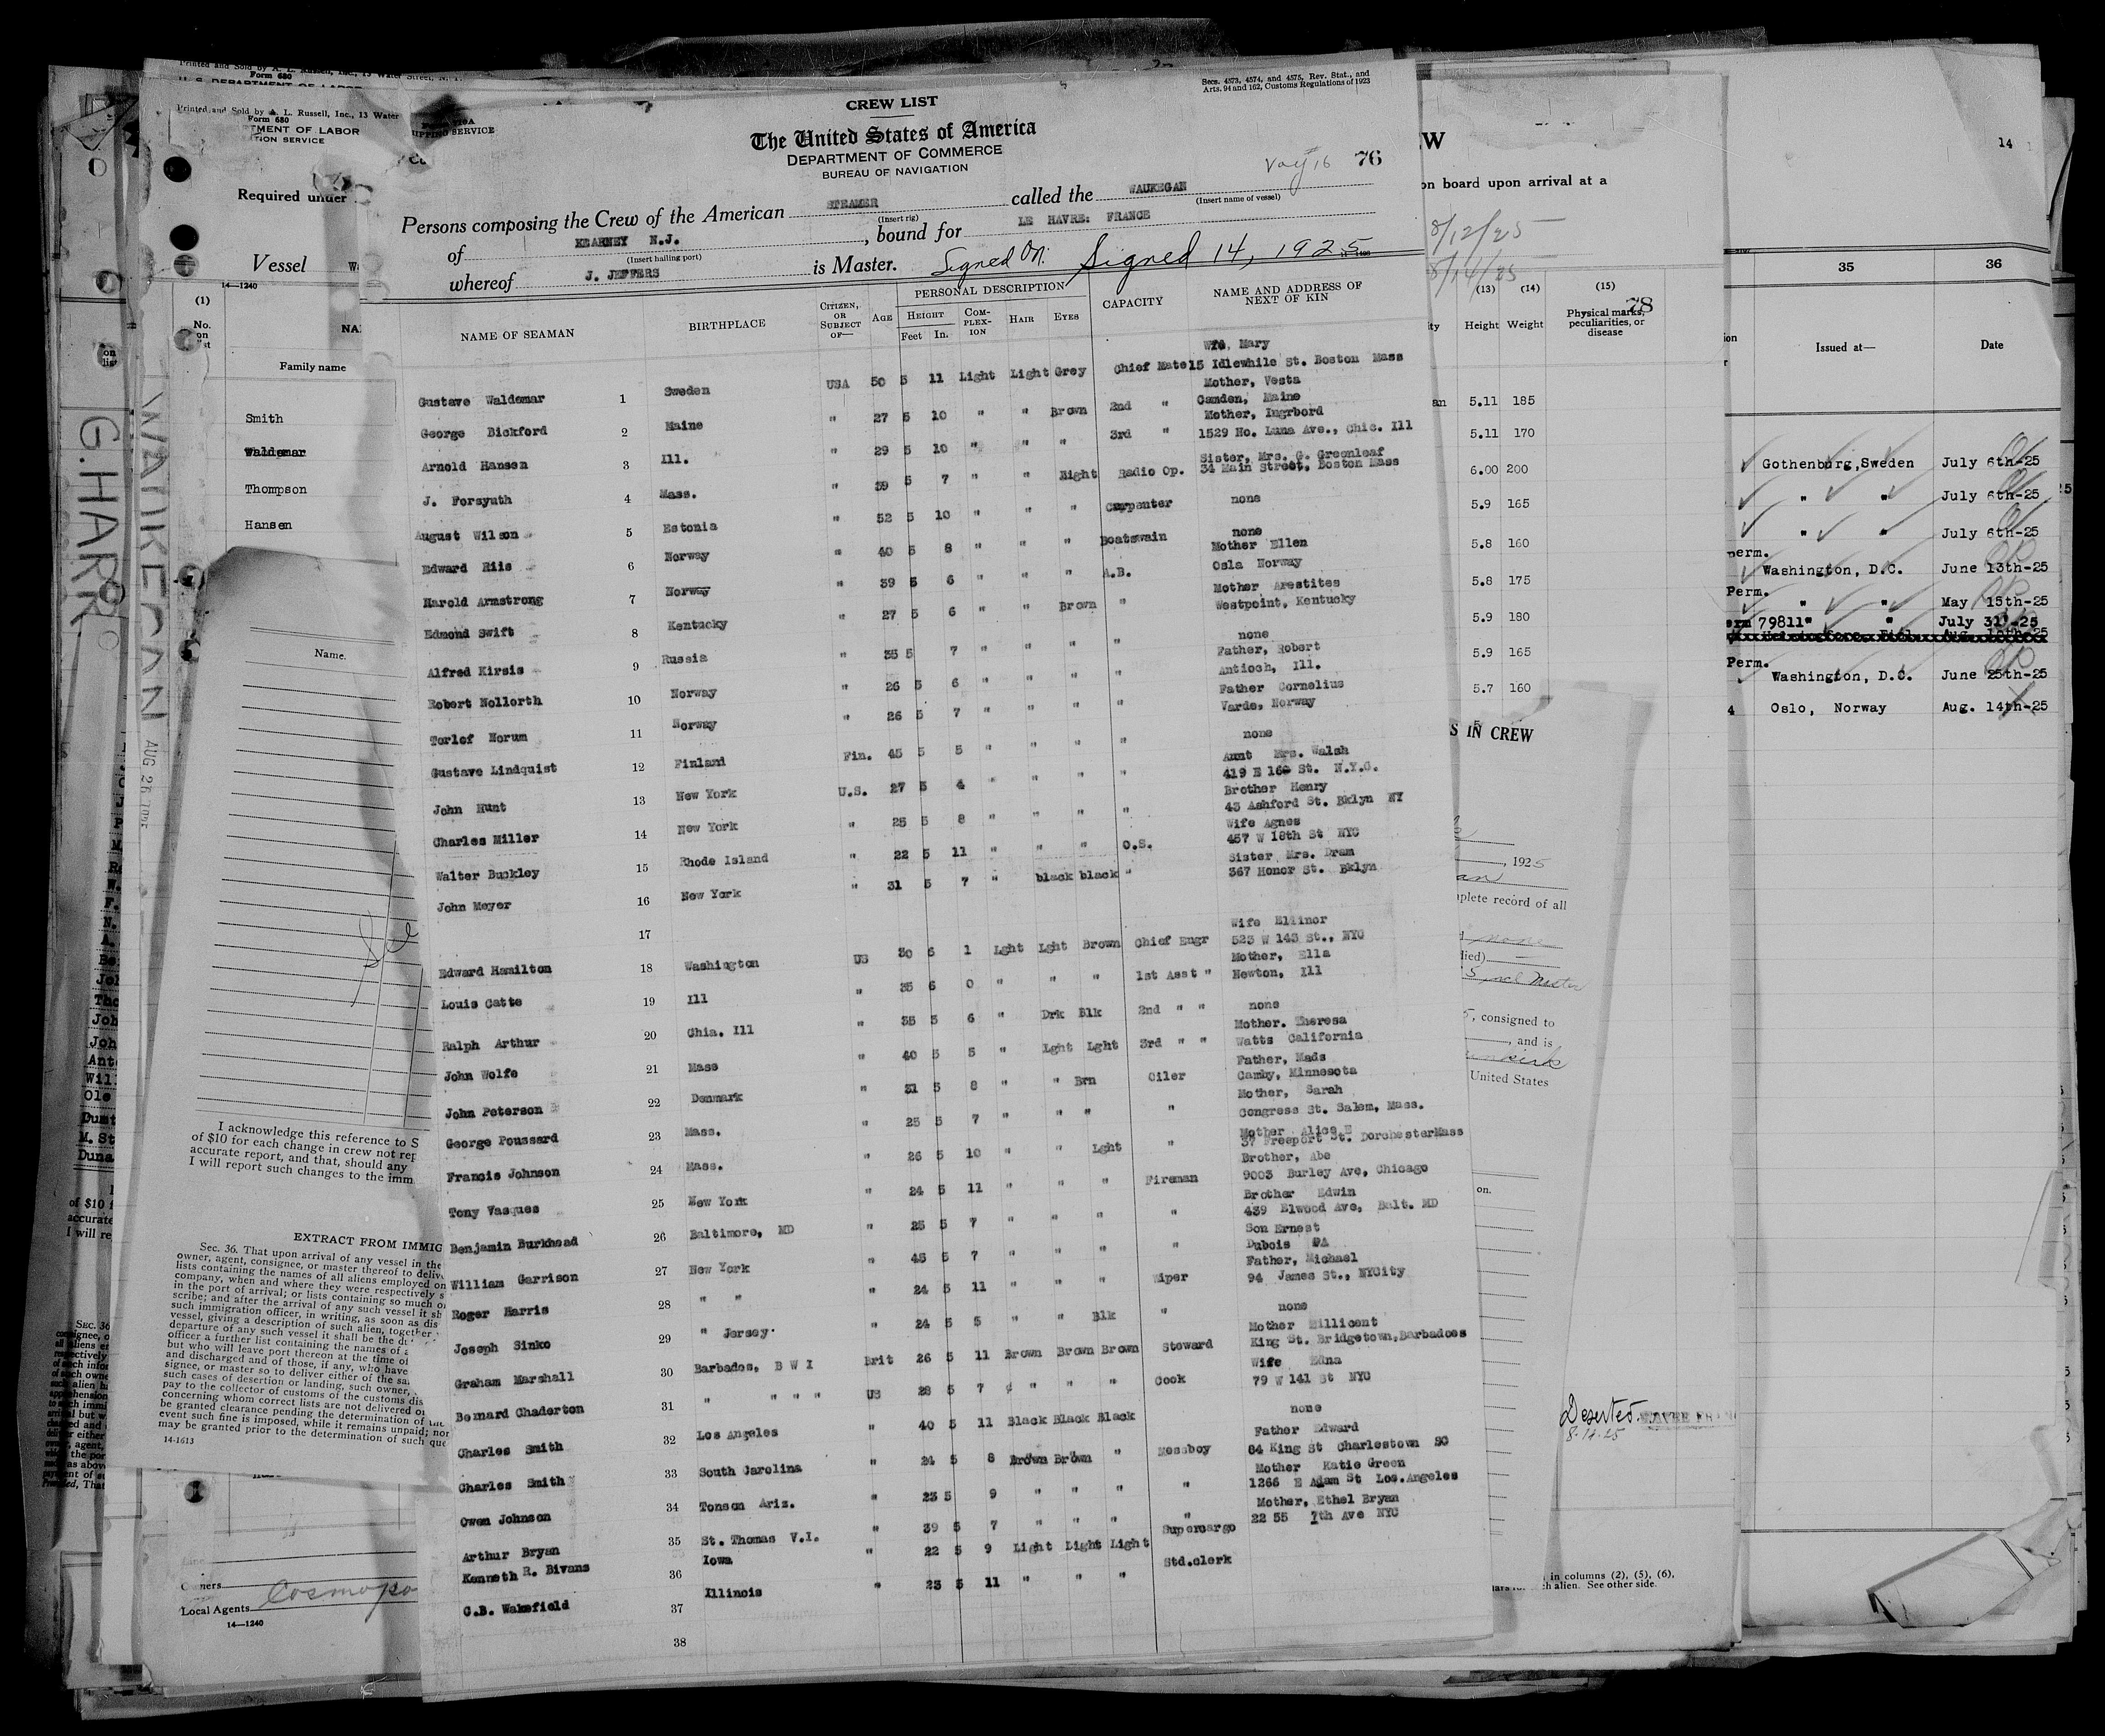 Secs. 4573, 4574, and 4575, Rev. Stat., and
Arts. 94 and 162, Customs Regulations of 1923
CREW LIST
The United States of America
DEPARTMENT OF COMMERCE
BUREAU OF NAVIGATION
Voy 16 76
Persons composing the Crew of the American STEAMER called the WAUKEGAN
(Insert rig) (Insert name of vessel)
of KEARNEY N.J. , bound for LE HAVRE: FRANCE
(Insert hailing port)
whereof J. JEFFERS is Master. Signed On. Signed 14, 1925
NAME OF SEAMAN BIRTHPLACE CITIZEN, OR SUBJECT OF— AGE PERSONAL DESCRIPTION HEIGHT Feet In. COMPLEXION HAIR EYES CAPACITY NAME AND ADDRESS OF NEXT OF KIN
Wife, Mary
Gustave Waldemar 1 Sweden USA 50 5 11 Light Light Grey Chief Mate 15 Idlewhile St. Boston Mass
Mother, Vesta
George Bickford 2 Maine " 27 5 10 " " Brown 2nd " Camden, Maine
Mother, Ingrbord
Arnold Hansen 3 Ill. " 29 5 10 " " " 3rd " 1529 No. Luna Ave., Chic. Ill
Sister, Mrs. G. Greenleaf
J. Forsyuth 4 Mass. " 39 5 7 " " Hight Radio Op. 34 Main Street, Boston Mass
August Wilson 5 Estonia " 52 5 10 " " " Carpenter none
Edward Riis 6 Norway " 40 5 8 " " " Boatswain none
Mother Ellen
Harold Armstrong 7 Norway " 39 5 6 " " " A.B. Osla Norway
Mother Arestites
Edmond Swift 8 Kentucky " 27 5 6 " " Brown " Westpoint, Kentucky
Alfred Kirsis 9 Russia " 35 5 7 " " " " none
Father, Robert
Robert Nollorth 10 Norway " 26 5 6 " " " " Antioch, Ill.
Father Cornelius
Torlof Norum 11 Norway " 26 5 7 " " " " Vardo, Norway
Gustave Lindquist 12 Finland Fin. 45 5 5 " " " " none
Aunt Mrs. Walsh
John Hunt 13 New York U.S. 27 5 4 " " " " 419 E 16 St. N.Y.C.
Brother Henry
Charles Miller 14 New York " 25 5 8 " " " " 43 Ashford St. Bklyn NY
Wife Agnes
Walter Buckley 15 Rhode Island " 22 5 11 " " " O.S. 457 W 18th St NYC
Sister Mrs. Dram
John Meyer 16 New York " 31 5 7 " black black " 367 Honor St. Bklyn
17
Wife Ellinor
Edward Hamilton 18 Washington US 30 6 1 Lght Lght Brown Chief Engr 523 W 143 St., NYC
Mother, Ella
Louis Catte 19 Ill " 35 6 0 " " " 1st Asst " Newton, Ill
Ralph Arthur 20 Chia. Ill " 35 5 6 " Drk Blk 2nd " " none
Mother. Theresa
John Wolfe 21 Mass " 40 5 5 " Lght Lght 3rd " " Watts California
Father, Mads
John Peterson 22 Denmark " 31 5 8 " " Brn Oiler Camby, Minnesota
Mother, Sarah
George Poussard 23 Mass. " 25 5 7 " " " " Congress St. Salem, Mass.
Mother Alice E
Francis Johnson 24 Mass. " 26 5 10 " " Lght " 37 Freeport St. DorchesterMass
Brother, Abe
Tony Vasques 25 New York " 24 5 11 " " " Fireman 9003 Burley Ave, Chicago
Brother Edwin
Benjamin Burkhead 26 Baltimore, MD " 25 5 7 " " " " 439 Elwood Ave, Balt. MD
Son Ernest
William Garrison 27 New York " 45 5 7 " " " " Dubois PA
Father, Michael
Roger Harris 28 " " " 24 5 11 " " " Wiper 94 James St., NYCity
Joseph Sinko 29 " Jersey. " 24 5 5 " " Blk " none
Mother Millicent
Graham Marshall 30 Barbados, B W I Brit 26 5 11 Brown Brown Brown Steward King St. Bridgetown,Barbadoes
Wife Edna
Bernard Chaderton 31 " " " " US 28 5 7 " " " Cook 79 W 141 St NYC
Charles Smith 32 Los Angeles " 40 5 11 Black Black Black none
Father Edward
Charles Smith 33 South Carolina " 24 5 8 Brown Brown " Messboy 84 King St Charlestown SC
Mother Katie Green
Owen Johnson 34 Tonson Ariz. " 23 5 9 " " " " 1266 E Adam St Los.Angeles
Mother, Ethel Bryan
Arthur Bryan 35 St. Thomas V.I. " 39 5 7 " " " " 22 55 7th Ave NYC
Kenneth R. Bivans 36 Iowa " 22 5 9 Light Light Light Supercargo
C.B. Wakefield 37 Illinois " 23 5 11 " " " Std.clerk
38
Printed and Sold by A. L. Russell, Inc., 13 Water
Form 680
TMENT OF LABOR
TION SERVICE
Required under
Vessel
14—1240
(1)
No. on
Family name
Smith
Waldemar
Thompson
Hansen
G. HARR
WAUKEGAN AUG 26
Name.
I acknowledge this reference to S
of $10 for each change in crew not rep
accurate report, and that, should any
I will report such changes to the imm
EXTRACT FROM IMMIG
Sec. 36. That upon arrival of any vessel in the
owner, agent, consignee, or master thereof to deliv
lists containing the names of all aliens employed on
company, when and where they were respectively s
in the port of arrival; or lists containing so much o
scribe; and after the arrival of any such vessel it sh
such immigration officer, in writing, as soon as dis
vessel, giving a description of such alien, together
departure of any such vessel it shall be the
officer a further list containing the names of
but who will leave port thereon at the time of
and discharged and of those, if any, who have
signee, or master so to deliver either of the sa
such cases of desertion or landing, such owner,
pay to the collector of customs of the customs dis
concerning whom correct lists are not delivered o
be granted clearance pending the determination of
event such fine is imposed, while it remains unpaid; nor
may be granted prior to the determination of such que
14-1613
Owners
Local Agents Cosmopo
14—1240
on board upon arrival at a
8/12/25
8/14/25
(13) (14) (15)
78
Height Weight Physical marks, peculiarities, or disease
5.11 185
5.11 170
6.00 200
5.9 165
5.8 160
5.8 175
5.9 180
5.9 165
5.7 160
S IN CREW
, 1925
plete record of all
none
, consigned to
, and is
United States
Deserted
8-14-25
in columns (2), (5), (6),
ch alien. See other side.
14
35 36
Issued at— Date
Gothenburg,Sweden July 6th-25
" " July 6th-25
" " July 6th-25
perm.
Washington, D.C. June 13th-25
Perm.
" " May 15th-25
79811" " July 31-25
Perm.
Washington, D.C. June 25th-25
4 Oslo, Norway Aug. 14th-25